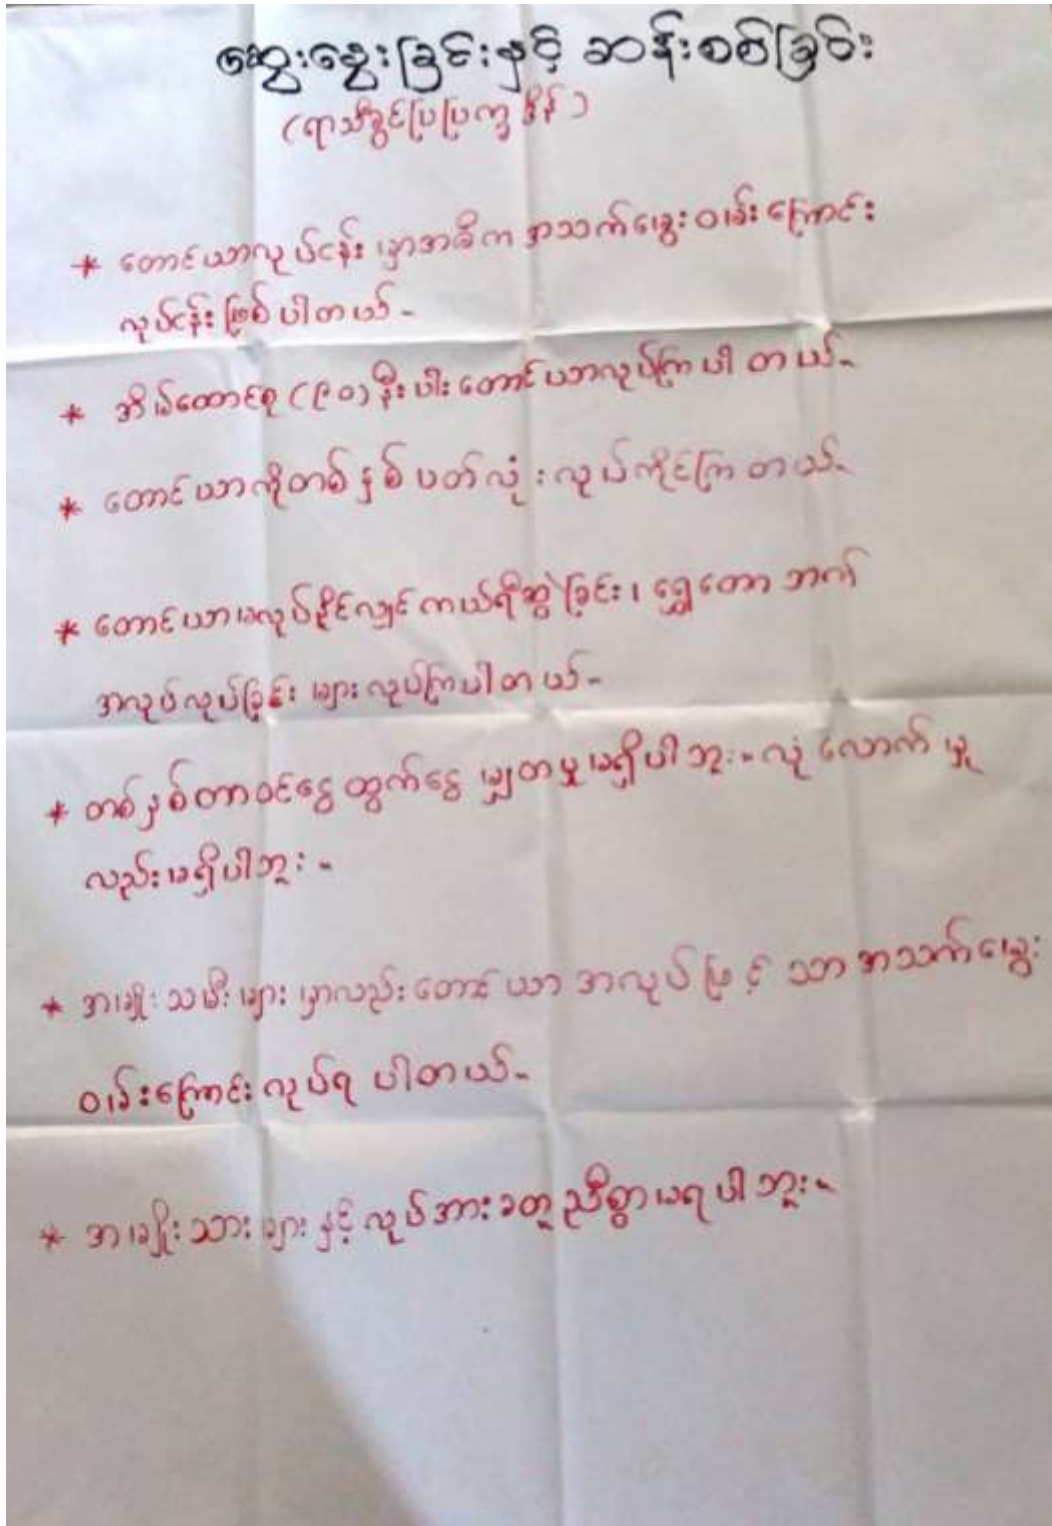 ဆွေးနွေးခြင်းနှင့် ဆန်းစစ်ခြင်း
(ရာသီခွင်ပြပြက္ခဒိန်)
* တောင်ယာလုပ်ငန်း မှာအဓိက အသက်မွေး ဝမ်းကြောင်း
လုပ်ငန်း ဖြစ်ပါတယ်။
* အိမ်ထောင်စု (၉၀) နီးပါး တောင်ယာလုပ်ကြပါတယ်။
* တောင်ယာကိုတစ်နှစ်ပတ်လုံး လုပ်ကိုင်ကြတယ်။
* တောင်ယာမလုပ်နိုင်လျှင် ကယ်ရီဆွဲခြင်း၊ ရွှေတောဘက်
အလုပ်လုပ်ခြင်းများ လုပ်ကြပါတယ်။
* တစ်နှစ်တာဝင်ငွေထွက်ငွေ မျှတမှုမရှိပါဘူး။ လုံလောက်မှု
လည်းမရှိပါဘူး။
* အမျိုးသမီးများမှာလည်း တောင်ယာအလုပ်ဖြင့် သာအသက်မွေး
ဝမ်းကြောင်းလုပ်ရပါတယ်။
* အမျိုးသားများနှင့် လုပ်အားခတူညီစွာမရပါဘူး။